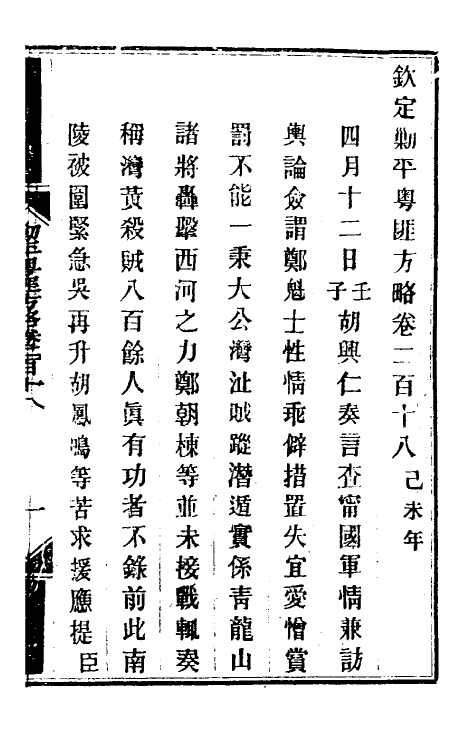 欽定勦平粤匪方略卷二百十八己未年
四月十二日壬子胡興仁奏言查甯國軍情兼訪
輿論僉謂鄭魁士性情乖僻措置失宜愛憎賞
罰不能一秉大公灣沚賊蹤潛遁實係靑龍山
諸將轟擊西河之力鄭朝棟等並未接戰輒奏
稱灣黄殺賊八百餘人眞有功者不錄前此南
陵被圍緊急吳再升胡鳳鳴等苦求援應提臣
一